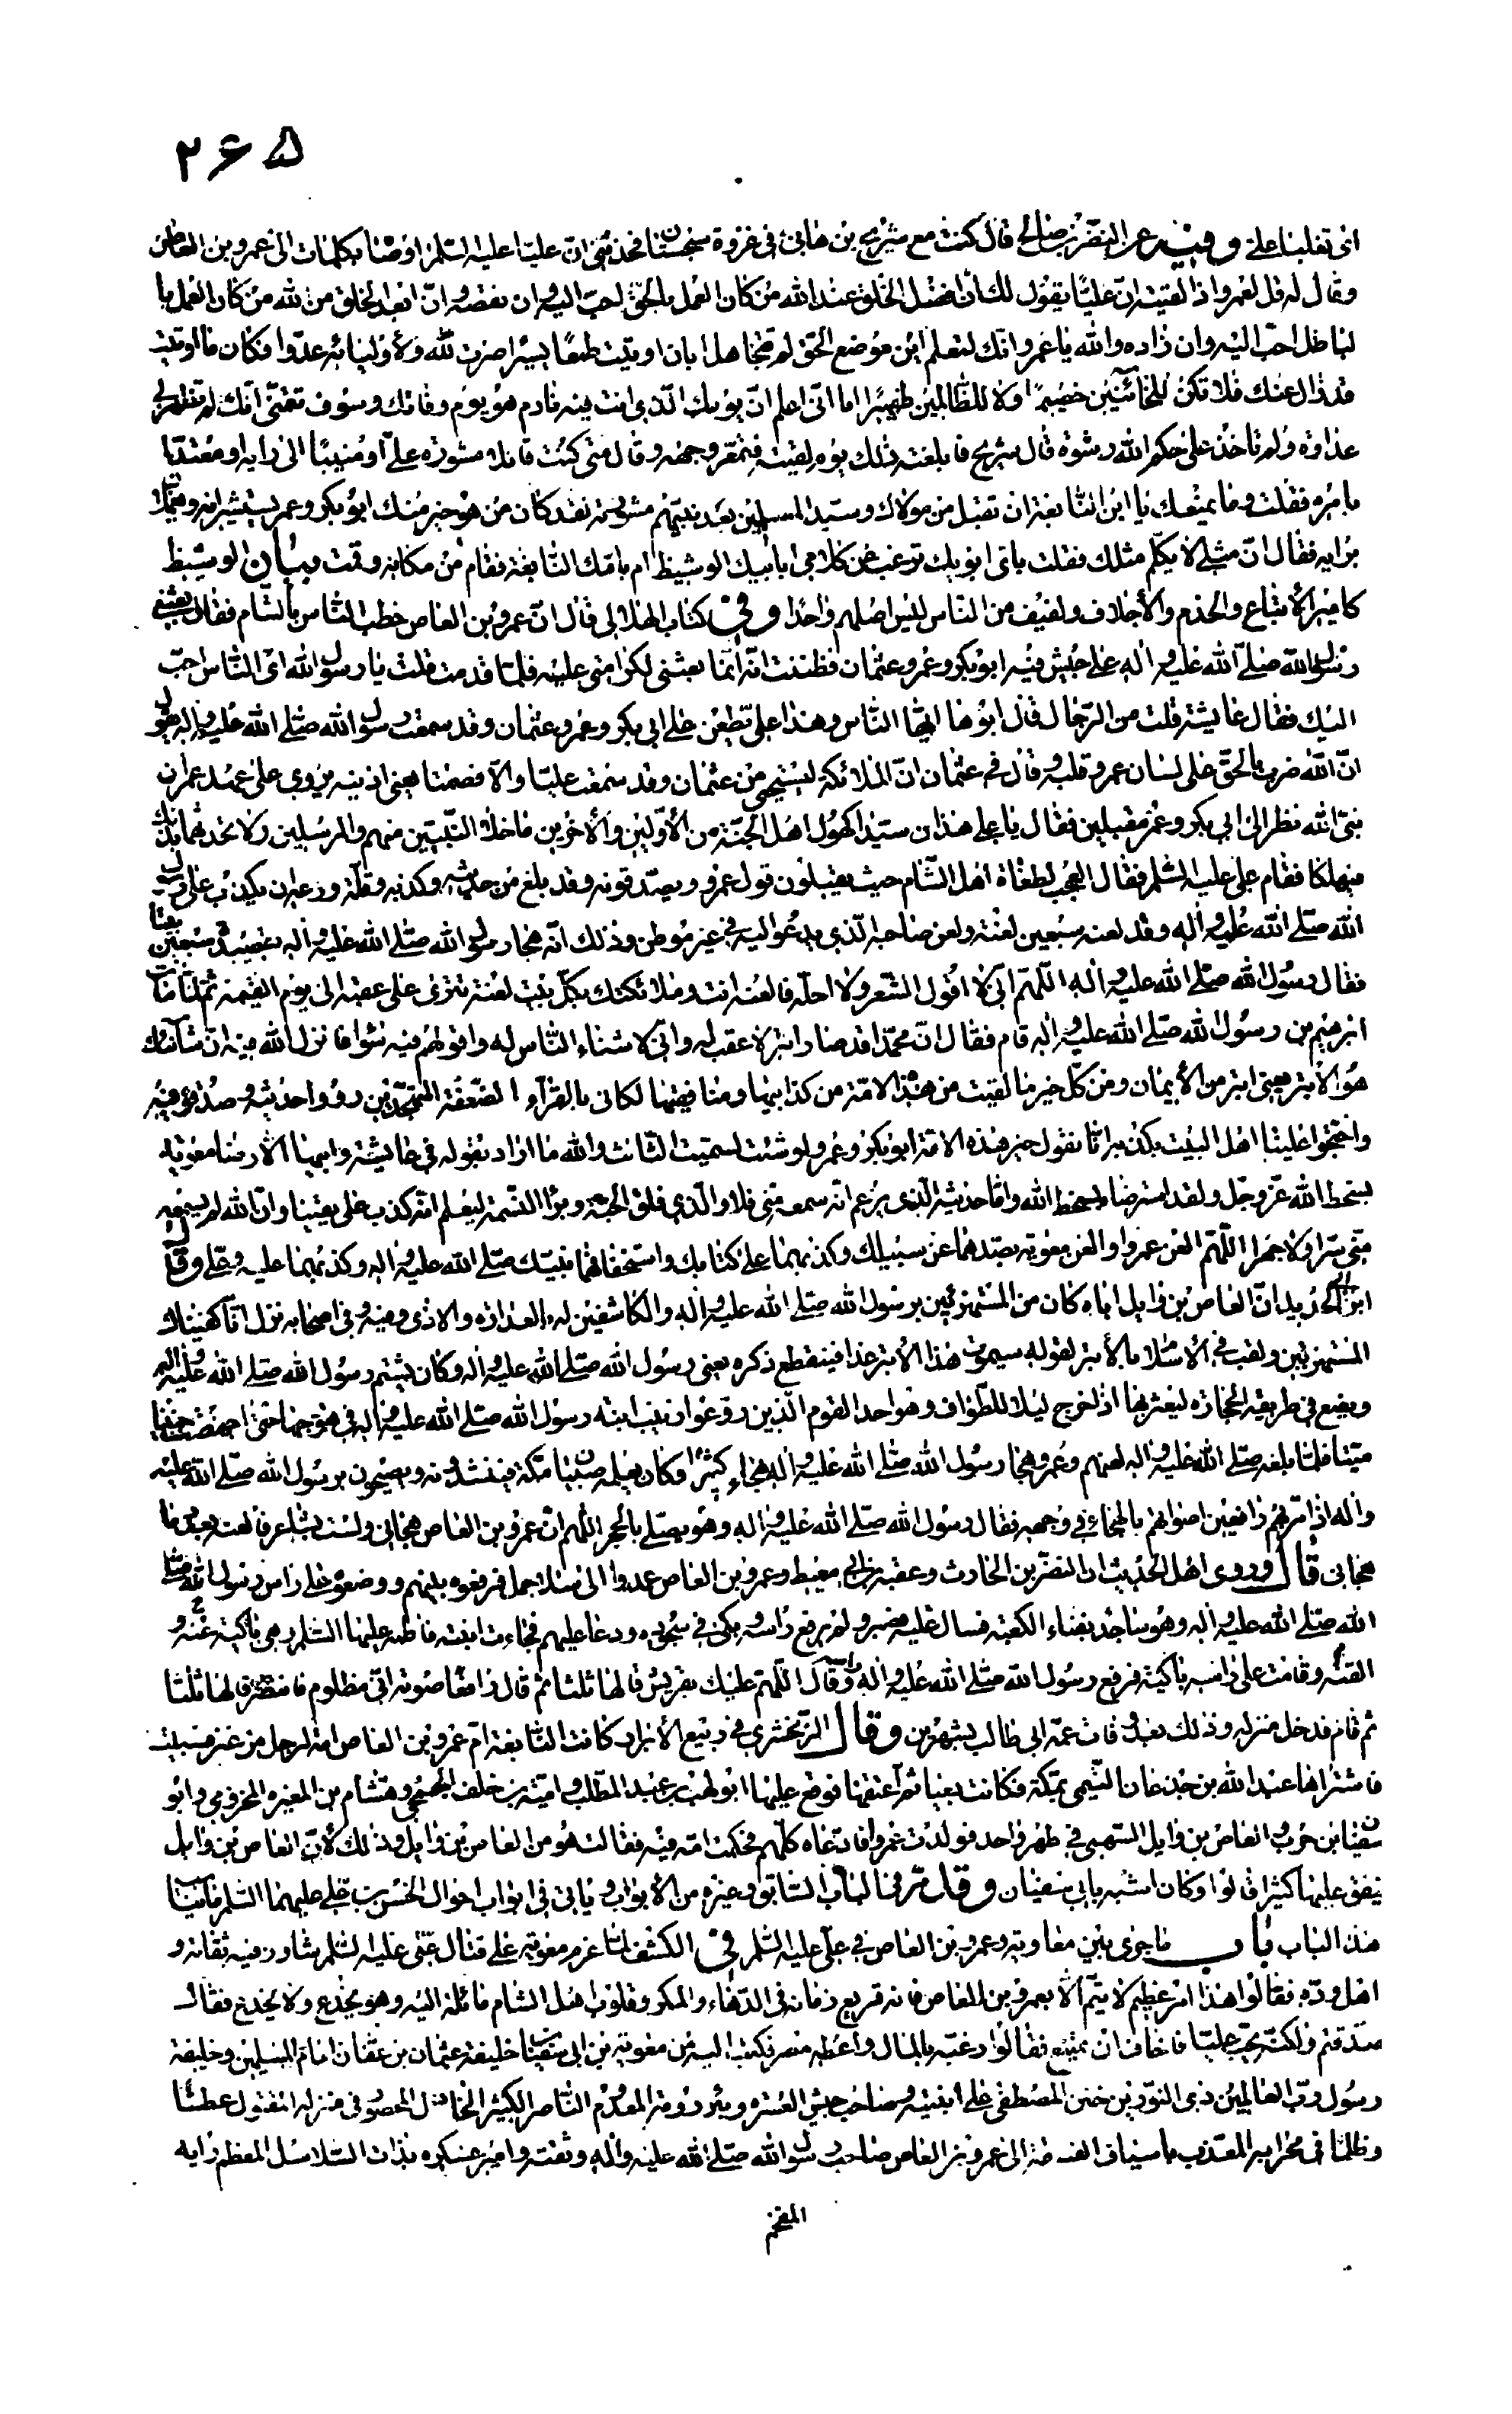 ۲۶۵
اى تغلبنا على وفيه عن النضر بن صالح قال كنت مع شريح بن هانئ فى غزوة سجستان فحدثنى ان عليا عليه السلم اوصنا بكلمات الى عمرو بن العاص
وقال له قل لعمرو اذا لقيته ان عليا يقول لك ان افضل الخلق عند الله من كان العمل بالحق احب اليه وان نقصه وان ابعد الخلق من الله من كان العمل با
لباطل احب اليه وان زاده والله يا عمرو انك لتعلم اين موضع الحق لم تتجاهل ابان اوتيت طمعا يسيرا صرت لله ولاوليائه عدوا فكان ما اوتيت
قد زال عنك فلا تكن للخائنين خصيما ولا للظالمين ظهيرا اما انى اعلم ان يومك الذى انت فيه نادم هو يوم وفاتك وسوف تتمنى انك لم تظهر لى
عداوة ولم تاخذ على حكم الله رشوة قال شريح فابلغته ذلك يوم لقيته فتمعر وجهه وقال متى كنت قابلا مشورة على او منيبا الى رايه او معتدا
بامره فقلت وما يمنعك يا ابن النابغة ان تقبل من مولاك وسيد المسلمين بعد نبيهم مشورته لقد كان من هو خير منك ابو بكر وعمر يستشيرانه ويعملان
برايه فقال ان مثلى لا يكلم مثلك فقلت باى ابويك ترغب عن كلامى ابابيك الوشيظ ام بامك النابغة فقام من مكانه وقمت بيان الوشيظ
كامير الاتباع والخدم والاحلاف ولفيف من الناس ليس اصلهم واحدا وفى كتاب الهلالى قال ان عمرو بن العاص خطب الناس بالشام فقال بعثنى
رسول الله صلى الله عليه واله على جيش فيه ابو بكر وعمر وعثمان فظننت انه انما بعثنى لكرامتى عليه فلما قدمت قلت يا رسول الله اى الناس احب
اليك فقال عايشة قلت من الرجال قال ابوها ايها الناس وهذا على يطعن على ابى بكر وعمر وعثمان وقد سمعت رسول الله صلى الله عليه واله يقول
ان الله ضرب بالحق على لسان عمر وقلبه وقال فى عثمان ان الملائكة ليستحيى من عثمان وقد سمعت عليا والا فصمتا يعنى اذنيه يروى على عهد عمر ان
نبى الله نظر الى ابى بكر وعمر مقبلين فقال يا على هذان سيدا كهول اهل الجنة من الاولين والاخرين ما خلا النبيين منهم والمرسلين ولا تحدثهما بذلك
فيهلكا فقام على عليه السلم فقال العجب لطغاة اهل الشام حيث يقبلون قول عمرو ويصدقونه وقد بلغ من حديثه وكذبه وقلة ورعه ان يكذب على رسول
الله صلى الله عليه واله وقد لعنه سبعين لعنة ولعن صاحبه الذى يدعو اليه فى غير موطن وذلك انه هجا رسول الله صلى الله عليه واله بقصيدة سبعين بيتا
فقال رسول الله صلى الله عليه واله اللهم انى لا اقول الشعر ولا احله فالعنه انت وملائكتك بكل بيت لعنة تترى على عقبه الى يوم القيمة ثم لما مات
ابرهيم بن رسول الله صلى الله عليه واله قام فقال ان محمدا قد صار ابتر لا عقب له وانى لاشناء الناس له واقولهم فيه سوءا فانزل الله فيه ان شانئك
هو الابتر يعنى ابتر من الايمان ومن كل خير ما لقيت من هذه الامة من كذابيها ومنافقيها لكانى بالقراء الضعفة المتهجدين رووا حديثه وصدقوه فيه
واحتجوا علينا اهل البيت بكذبه انا نقول خير هذه الامة ابو بكر وعمر ولو شئت لسميت الثالث والله ما اراد بقوله فى عايشة وابيها الا رضا معوية
بسخط الله عز وجل ولقد استرضاه بسخط الله واما حديثه الذى يزعم انه سمعه منى فلا والذى فلق الحبة وبرأ النسمة ليعلم انه كذب على يقينا وان الله لم يسمعه
منى سرا ولا جهرا اللهم العن عمروا والعن معوية بصدهما عن سبيلك وكذبهما على كتابك واستخفافهما بنبيك صلى الله عليه واله وكذبهما عليه وعلى وقال
ابن ابى الحديد ان العاص بن وايل اباه كان من المستهزئين برسول الله صلى الله عليه واله والكاشفين له بالعداوة والاذى وفيه وفى اصحابه نزل انا كفيناك
المستهزئين ولقب فى الاسلام بالابتر لقوله سيموت هذا الابتر غدا فينقطع ذكره يعنى رسول الله صلى الله عليه واله وكان يشتم رسول الله صلى الله عليه واله
ويضع فى طريقه الحجارة ليعثر بها اذا خرج ليلا للطواف وهو احد القوم الذين روعوا زينب ابنة رسول الله صلى الله عليه واله فى هودجها حتى اجهضت جنينا
ميتا فلما بلغه صلى الله عليه واله لعنهم وعمرو هجا رسول الله صلى الله عليه واله هجاء كثيرا وكان يعلمه صبيان مكة فينشدونه ويصيحون برسول الله صلى الله عليه
واله اذا مر بهم رافعين اصواتهم بالهجاء فى وجهه فقال رسول الله صلى الله عليه واله وهو يصلى بالحجر اللهم ان عمرو بن العاص هجانى ولست بشاعر فالعنه بعدد ما
هجانى قال وروى اهل الحديث ان النضر بن الحارث وعقبة بن ابى معيط وعمرو بن العاص عمدوا الى سلا جمل فرفعوه بينهم ووضعوه على راس رسول الله صلى
الله صلى الله عليه واله وهو ساجد بفناء الكعبة فسال عليه فصبر ولم يرفع راسه وبكى فى سجوده ودعا عليهم فجاءت ابنته فاطمة عليها السلم وهى باكية عنه و
القته وقامت على راسه باكية فرفع رسول الله صلى الله عليه واله راسه وقال اللهم عليك بقريش قالها ثلثا ثم قال رافعا صوته انى مظلوم فانتصر قالها ثلثا
ثم قام فدخل منزله وذلك بعد وفات عمه ابى طالب بشهرين وقال الزمخشرى فى ربيع الابرار كانت النابغة ام عمرو بن العاص امة لرجل من عنزة فسبيت
فاشتراها عبد الله بن جدعان التيمى بمكة فكانت بغيا ثم اعتقها فوقع عليها ابو لهب بن عبد المطلب وامية بن خلف الجمحى وهشام بن المغيره المخزومى وابو
سفيان بن حرب والعاص بن وايل السهمى فى طهر واحد فولدت عمروا فادعاه كلهم فحكمت امه فيه فقالت هو من العاص بن وايل وذلك لان العاص بن وايل
ينفق عليها كثيرا قالوا وكان اشبه بابى سفيان وقد مر فى الباب السابق وغيره من الابواب وياتى فى ابواب احوال الحسن بن على عليهما السلم ما يناسب
هذا الباب باب ما جرى بين معاوية وعمرو بن العاص فى على عليه السلم فى الكشف لما عزم معوية على قتال على عليه السلم شاور فيه ثقاته و
اهل وده فقالوا هذا امر عظيم لا يتم الا بعمرو بن العاص فانه قريع زمانه فى الدهاء والمكر وقلوب اهل الشام مائلة اليه وهو يخدع ولا يخدع فقال
صدقتم ولكنه يحب عليا فاخاف ان يمتنع فقالوا رغبه بالمال واعطه مصر فكتب اليه من معوية بن ابى سفيان خليفة عثمان بن عفان امام المسلمين وخليفة
رسول رب العالمين ذى النورين ختن المصطفى على ابنتيه وصاحب جيش العسرة وبئر رومة المعدوم الناصر الكثير الخاذل المحصور فى منزله المقتول عطشا
وظلما فى محرابه المعذب باسياف الفسقة الى عمرو بن العاص صاحب رسول الله صلى الله عليه واله وثقته وامير عسكره بذات السلاسل المعظم رايه
المفخم